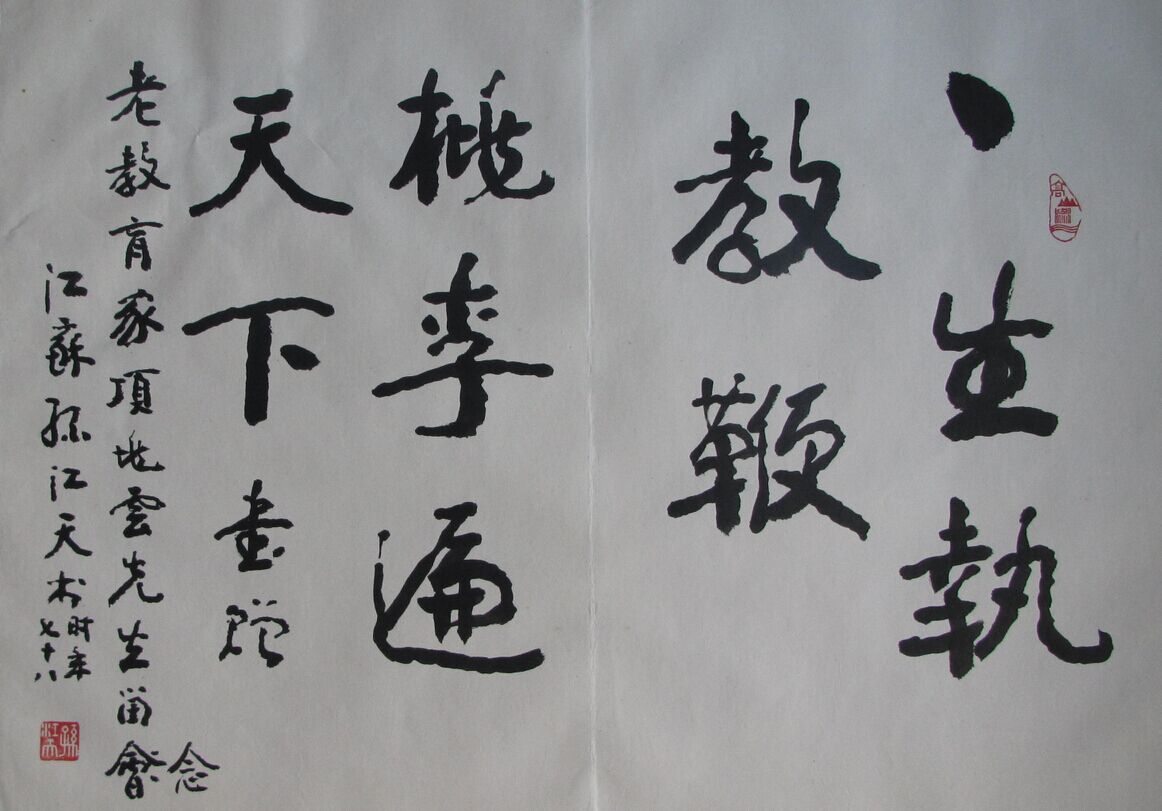 一生執
教鞭
桃李遍
天下書贈
老教育家項兆雲先生留念
江蘇孫江天时年
七十八